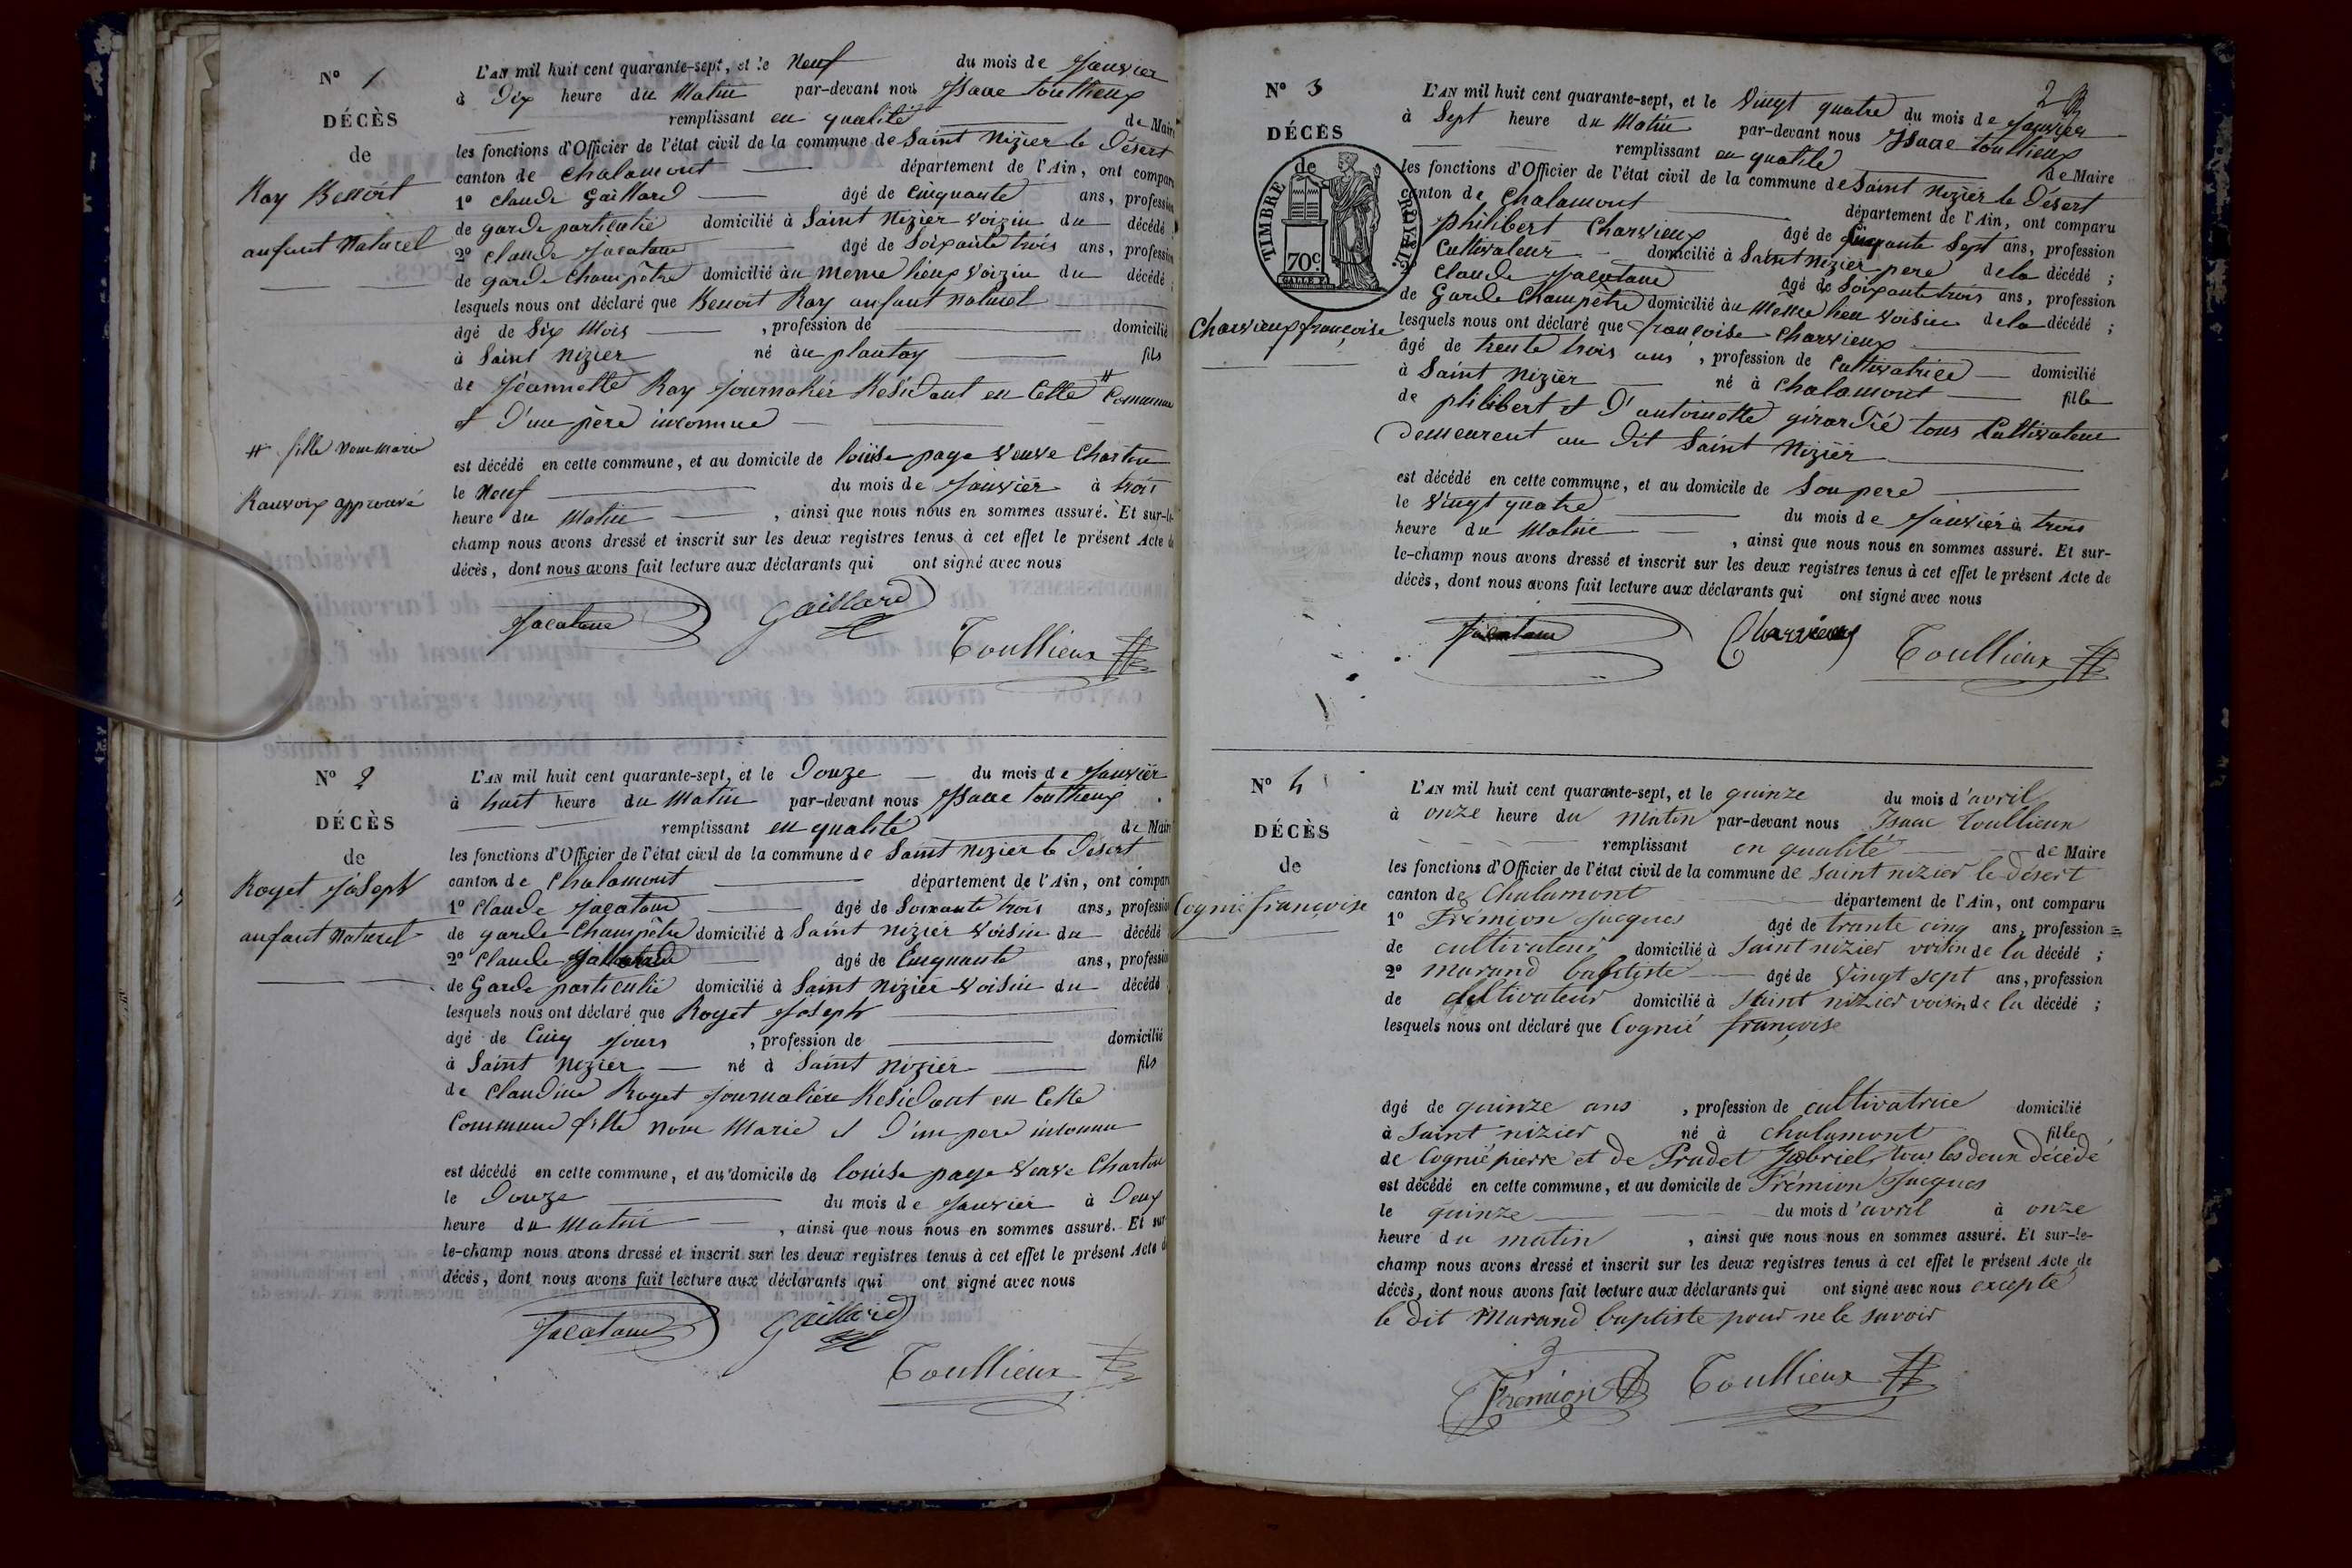 N° 1
DÉCÈS
de
Ray Benoit
anfant Naturel
# fille non marie
Ranvoix approuvé
L'AN mil huit cent quarante-sept, et le Neuf du mois de Janvier
à Dix heure du Matin par-devant nous Isaac Toullieux
remplissant en qualité de Maire
les fonctions d'Officier de l'état civil de la commune de Saint Nizier le Désert
canton de Chalamont département de l'Ain, ont compar
1° Claude Gaillard âgé de Cinquante ans, profession
de garde particulié domicilié à Saint Nizier voizin du décédé
2° Claude Jacatone âgé de Soixante trois ans, profession
de garde Champêtre domicilié au meme lieux voizin du décédé ;
lesquels nous ont déclaré que Benoit Ray anfant naturel
âgé de Six Mois , profession de domicilié
à Saint Nizier né au plantay fils
de Jeannette Ray Journalier Residant en Cette # Commune
et D'un père inconnue
est décédé en cette commune, et au domicile de louise page veuve Charton
le Neuf du mois de Janvier à trois
heure du Matin , ainsi que nous nous en sommes assuré. Et sur-le-
champ nous avons dressé et inscrit sur les deux registres tenus à cet effet le présent Acte de
décès, dont nous avons fait lecture aux déclarants qui ont signé avec nous
Gaillard
Toullieux
N° 2
DÉCÈS
de
Royet Joseph
anfant Naturel
L'AN mil huit cent quarante-sept, et le Douze du mois de Janvier
à huit heure du Matin par-devant nous Isaac Toullieux
remplissant en qualité de Mair
les fonctions d'Officier de l'état civil de la commune de Saint Nizier le Désert
canton de Chalamont département de l'Ain, ont compar
1° Claude Jacatone âgé de Soixante trois ans, profession
de garde Champêtre domicilié à Saint Nizier voisin du décédé
2° Claude âgé de Cinquante ans, profession
de Garde particulié domicilié à Saint Nizier voisin du décédé
lesquels nous ont déclaré que Royet Joseph
âgé de Cinq Jours , profession de domicilié
à Saint Nizier né à Saint Nizier fils
de Claudine Royet Journalière Residant en Cette
Commune fille non Marie et D'un pere inconnu
est décédé en cette commune, et au domicile de louise page veuve Charton
le Douze du mois de Janvier à Deux
heure du Matin , ainsi que nous nous en sommes assuré. Et sur
le-champ nous avons dressé et inscrit sur les deux registres tenus à cet effet le présent Acte d
décès, dont nous avons fait lecture aux déclarants qui ont signé avec nous
Gaillard
Toullieux
2
N° 3
DÉCÈS
de
TIMBRE ROYAL
70c
Charvieux françoise
L'AN mil huit cent quarante-sept, et le Vingt quatre du mois de Janvier
à Sept heure du Matin par-devant nous Isaac Toullieux
remplissant en qualité de Maire
les fonctions d'Officier de l'état civil de la commune de Saint Nizier le Désert
canton de Chalamont département de l'Ain, ont comparu
Philibert Charvieux âgé de Cinquante Sept ans, profession
Cultivateur domicilié à Saint Nizier pere de la décédé ;
Claude Jacatone âgé de Soixante trois ans, profession
de Garde Champêtre domicilié au Même lieu voisin de la décédé ;
lesquels nous ont déclaré que françoise Charvieux
âgé de trente trois ans , profession de Cultivatrice domicilié
à Saint Nizier né à Chalamont fille
de philibert et D'antoinette girardié tous Cultivateur
Demeurent au Dit Saint Nizier
est décédé en cette commune, et au domicile de Son pere
le Vingt quatre du mois de Janvier à trois
heure du Matin , ainsi que nous nous en sommes assuré. Et sur-
le-champ nous avons dressé et inscrit sur les deux registres tenus à cet effet le présent Acte de
décès, dont nous avons fait lecture aux déclarants qui ont signé avec nous
Charvieux
Toullieux
N° 4
DÉCÈS
de
Cognié françoise
L'AN mil huit cent quarante-sept, et le quinze du mois d'avril
à onze heure du matin par-devant nous Isaac Toullieux
remplissant en qualité de Maire
les fonctions d'Officier de l'état civil de la commune de Saint nizier le désert
canton de Chalamont département de l'Ain, ont comparu
1° Frémion Jacques âgé de trante cinq ans, profession
de cultivateur domicilié à Saint nizier voisin de la décédé ;
2° Marand baptiste âgé de Vingt sept ans, profession
de cultivateur domicilié à Saint nizier voisin de la décédé ;
lesquels nous ont déclaré que Cognié françoise
âgé de quinze ans , profession de cultivatrice domicilié
à Saint nizier né à chalamont fille
de Cognié pierre et de Pradet Gabriel, tous les deux décédé
est décédé en cette commune, et au domicile de Frémion Jacques
le quinze du mois d'avril à onze
heure du matin , ainsi que nous nous en sommes assuré. Et sur-le-
champ nous avons dressé et inscrit sur les deux registres tenus à cet effet le présent Acte de
décès, dont nous avons fait lecture aux déclarants qui ont signé avec nous excepté
le dit Marand baptiste pour ne le savoir
Fremion
Toullieux